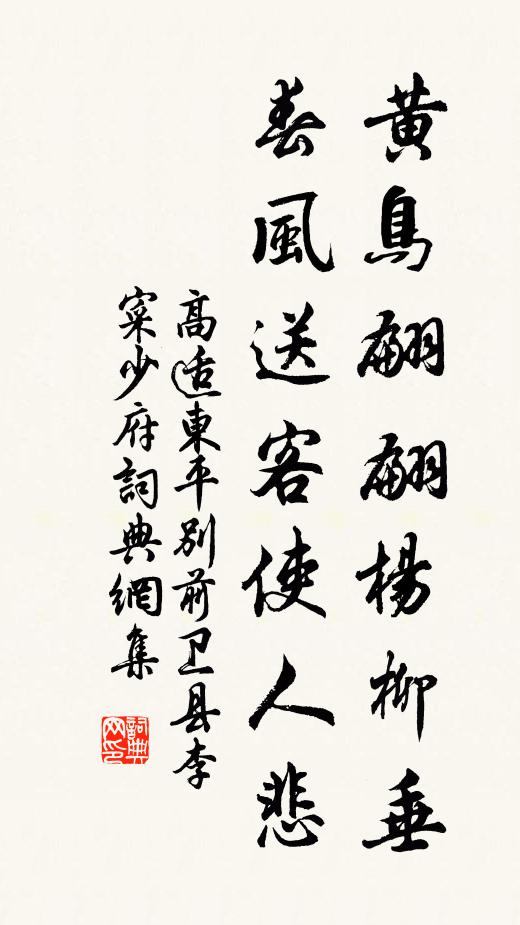 黄鳥翩翩楊柳垂
春風送客使人悲
高适東平别前卫县李
寀少府詞典網集
詞典网印